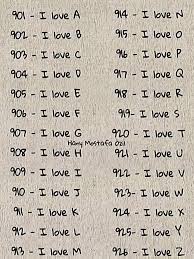 901 - I love A
902 - I love B
903 - I love C
904 - I love D
905 - I love E
906 - I love F
907 - I love G
908 - I love H
909 - I love I
910 - I love J
911 - I love K
912 - I love L
913 - I love M
Hany Mostafa Ozil
914 - I love N
915 - I love O
916 - I love P
917 - I love Q
918 - I love R
919 - I love S
920 - I love T
921 - I love U
922 - I love V
923 - I love W
924 - I love X
925 - I love Y
926 - I love Z